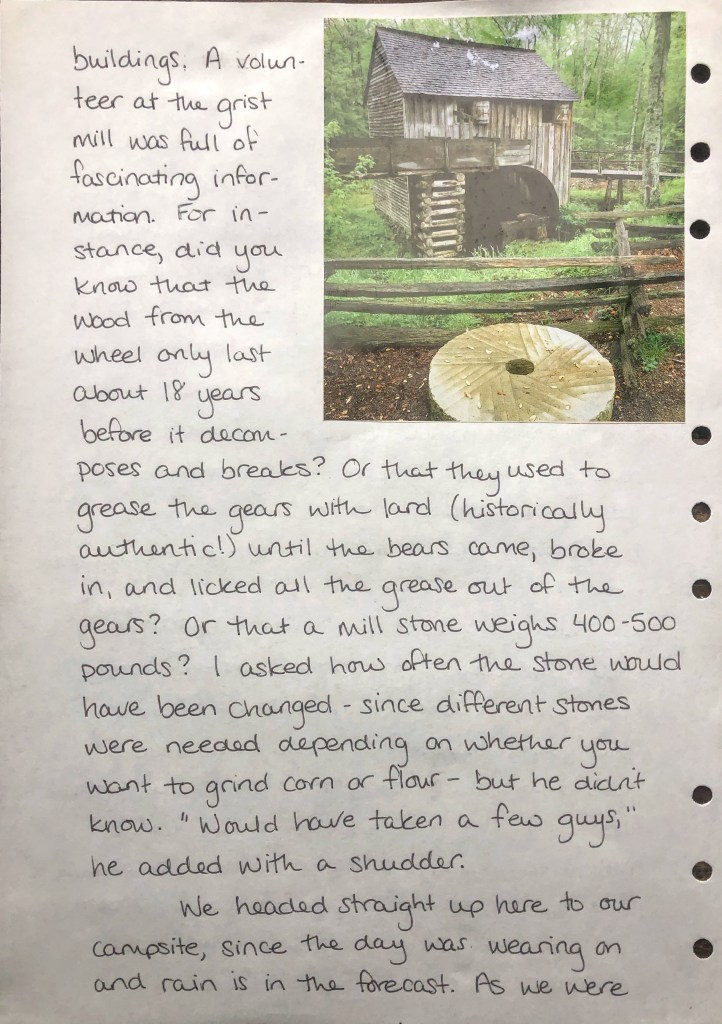 buildings. A volun-
teer at the grist
mill was full of
fascinating infor-
mation. For in-
stance, did you
know that the
wood from the
wheel only last
about 18 years
before it decom-
poses and breaks? Or that they used to
grease the gears with lard (historically
authentic!) until the bears came, broke
in, and licked all the grease out of the
gears? Or that a mill stone weighs 400-500
pounds? I asked how often the stone would
have been changed - since different stones
were needed depending on whether you
want to grind corn or flour - but he didn't
know. "Would have taken a few guys,"
he added with a shudder.
We headed straight up here to our
campsite, since the day was wearing on
and rain is in the forecast. As we were